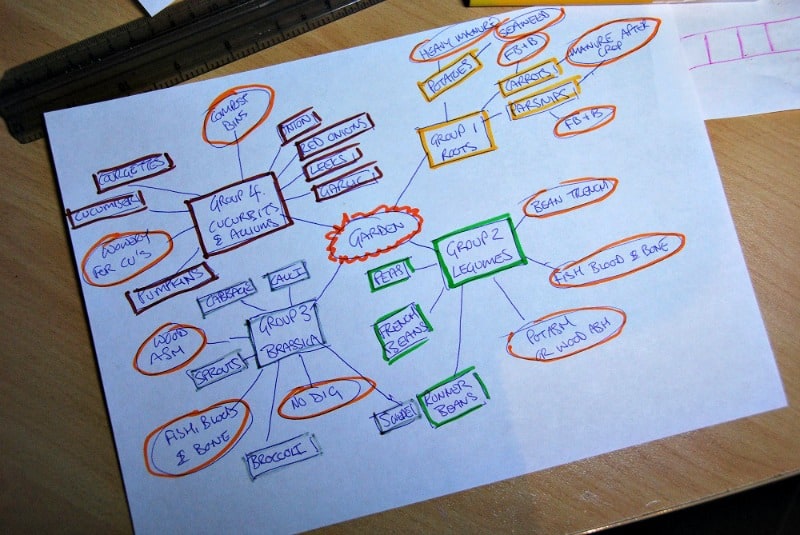 HEAVY MANURE
SEAWEED
FB+B
MANURE AFTER
CROP
POTATOES
CARROTS
PARSNIPS
FB+B
GROUP 1
ROOTS
COMPOST
BINS
ONION
RED ONIONS
LEEKS
GARLIC
COURGETTES
CUCUMBER
GROUP 4
CUCURBITS
& ALLIUMS
FOR CU'S
PUMPKINS
GARDEN
BEAN TRENCH
GROUP 2
LEGUMES
FISH BLOOD & BONE
PEAS
FRENCH
BEANS
POTASH
OR WOOD ASH
RUNNER
BEANS
CABBAGE
CAULI
GROUP 3
BRASSICA
WOOD
ASH
SPROUTS
NO DIG
FISH, BLOOD
& BONE
BROCCOLI